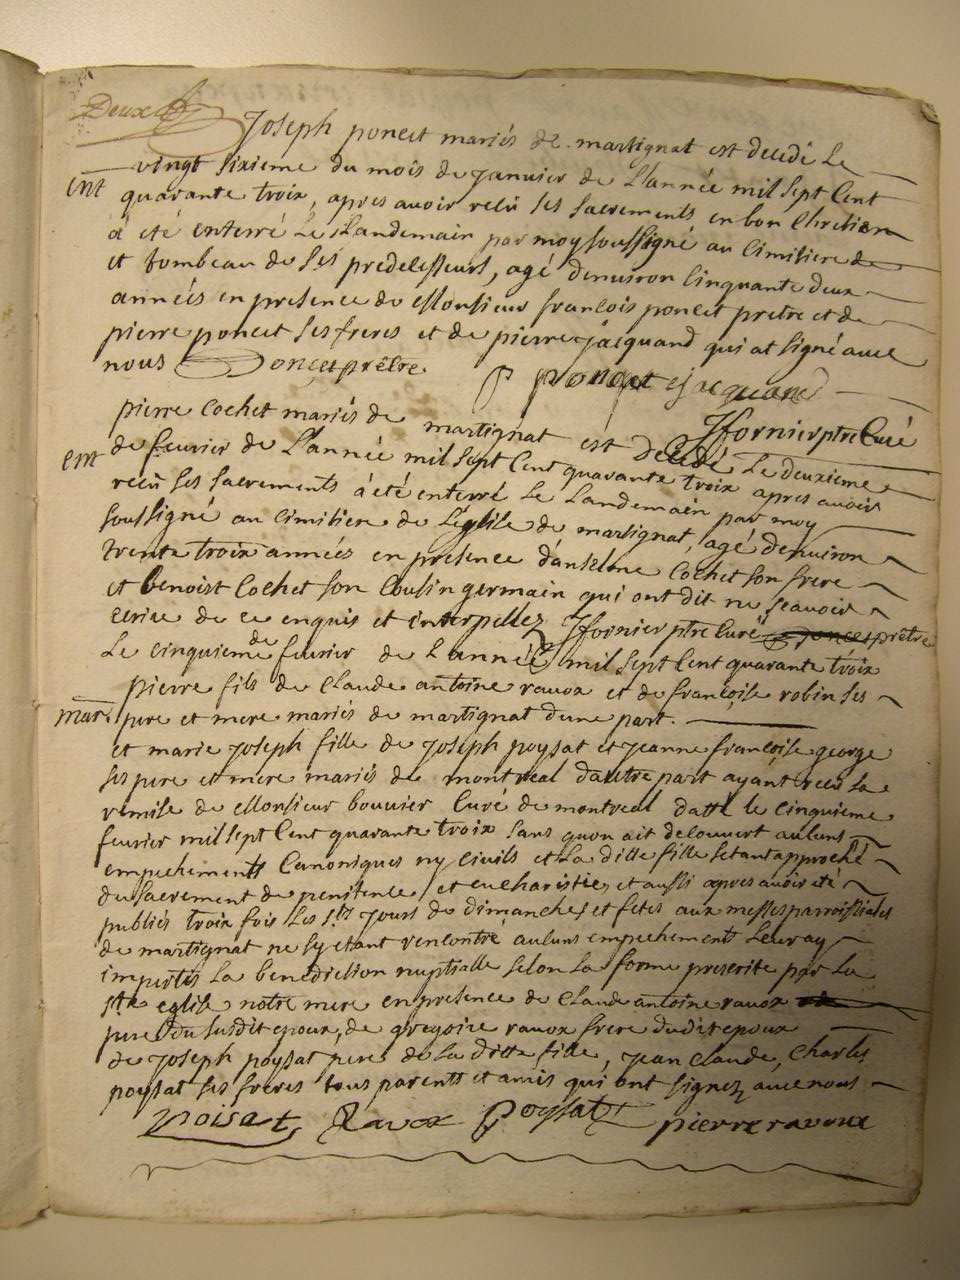 Deux
Joseph poncet mariés de martignat est decedé Le
ent vingt sixieme du mois de Janvier de L'année mil sept Cent
quarante trois, apres avoir recû ses sacrements en bon Chretien
à été enterré Le Landemain par moy soussigné au Cimitiere de
et tombeau de ses predecesseurs, agé denviron Cinquante deux
années en presence de Monsieur françois poncet pretre et de
pierre poncet ses freres et de pierre jacquand qui at signé avec
nous Poncet prêtre P poncet jacquand
Jfornier ptre Curé
pierre Cochet mariés de martignat est decedé Le deuxieme
ent de fevrier de L'année mil sept Cent quarante trois apres avoir
recû ses sacrements à été enterré Le Landemain par moy
soussigné au Cimitiere de L'église de martignat, agé denviron
trente trois années en presence danselme Cochet son frere
et benoist Cochet son Cousin germain qui ont dit ne scavoir
ecrire de ce enquis et interpellez Jfornier ptre Curé poncet prêtre
Le cinquieme de fevrier de L'année mil sept Cent quarante trois
pierre fils de Claude antoine ravoz et de françoise robin ses
mar. pere et mere mariés de martignat d'une part.
et marie Joseph fille de Joseph poysat et Jeanne françoise george
ses pere et mere mariés de montreal dautre part ayant recû la
remise de Monsieur bouvier Curé de montreal datté le cinquieme
fevrier mil sept Cent quarante trois sans quon ait decouvert aucuns
empechements Canoniques ny Civils et La ditte fille setant approché
du sacrement de penitence, et eucharistie, et aussi apres avoir été
publiés trois fois Les sts Jours de dimanches et fetes aux messes parroissiales
de martignat ne sy etant rencontré aucuns empechements Leur ay
impertis La benediction nuptialle selon La forme prescrite par La
ste eglise notre mere en presence de Claude antoine ravoz
pere du susdit epoux, de gregoire ravoz frere dudit epoux
de Joseph poysat pere de La ditte fille, Jean Claude, Charles
poysat ses freres tous parents et amis qui ont signez avec nous
Poisat Ravoz Poysat pierre ravoux